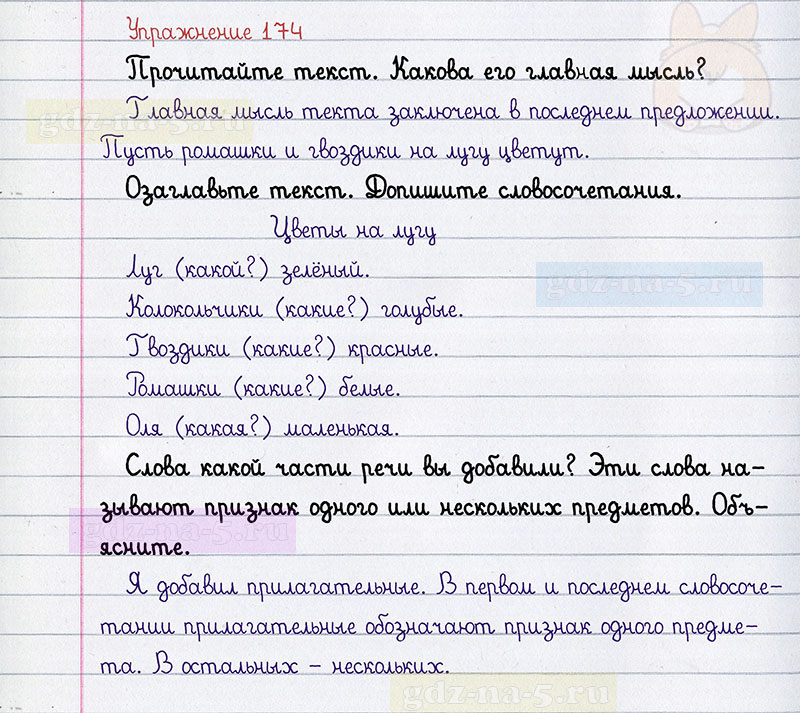 Упражнение 174
Прочитайте текст. Какова его главная мысль?
Главная мысль текта заключена в последнем предложении.
gdz-na-5.ru
Пусть ромашки и гвоздики на лугу цветут.
Озаглавьте текст. Допишите словосочетания.
Цветы на лугу
Луг (какой?) зелёный.
gdz-na-5.ru
Колокольчики (какие?) голубые.
Гвоздики (какие?) красные.
Ромашки (какие?) белые.
Оля (какая?) маленькая.
Слова какой части речи вы добавили? Эти слова на-
зывают признак одного или нескольких предметов. Объ-
gdz-na-5.ru
ясните.
Я добавил прилагательные. В первом и последнем словосоче-
тании прилагательные обозначают признак одного предме-
та. В остальных – нескольких.
gdz-na-5.ru